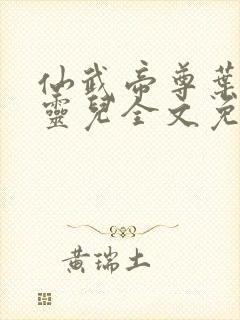 仙武帝尊葉
靈兒全文免
黄瑞土